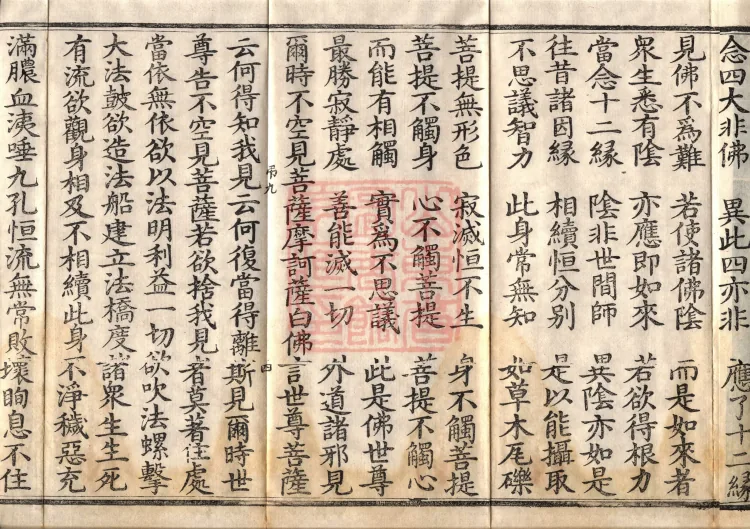 念四大非佛　異此四亦非　應了十二緣
見佛不為難　若使諸佛陰　而是如來者
衆生悉有陰　亦應即如來　若欲得根力
當念十二緣　陰非世間師　異陰亦如是
往昔諸因緣　相續恒分別　是以能攝取
不思議智力　此身常無知　如草木尾礫
菩提無形色　寂滅恒不生　身不觸菩提
菩提不觸身　心不觸菩提　菩提不觸心
而能有相觸　實為不思議　此是佛世尊
最勝寂靜處　善能滅一切　外道諸邪見
爾時不空見菩薩摩訶薩白佛言世尊菩薩
帛九
四
云何得知我見云何復當得離斯見爾時世
尊告不空見菩薩若欲捨我見者莫著住處
當依無依欲以法明利益一切欲吹法螺擊
大法鼓欲造法船建立法橋度諸衆生生死
有流欲觀身相及不相續此身不淨穢惡充
滿膿血洟唾九孔恒流無常敗壞眴息不住